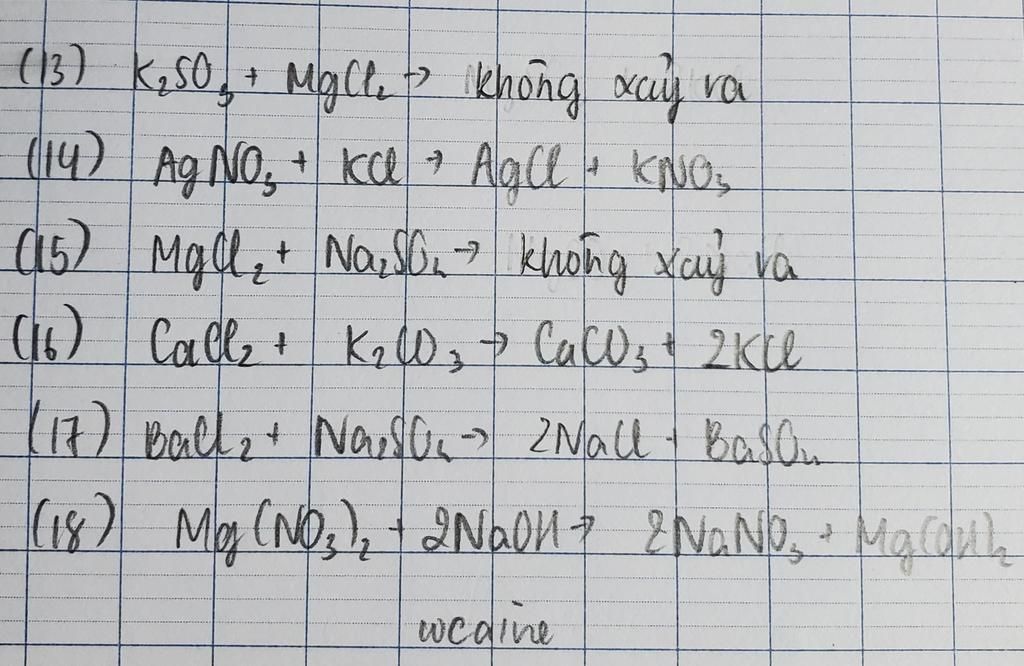 (13) K₂SO₃ + MgCl₂ → không xảy ra
(14) AgNO₃ + KCl → AgCl + KNO₃
(15) MgCl₂ + Na₂SO₄ → không xảy ra
(16) CaCl₂ + K₂CO₃ → CaCO₃ + 2KCl
(17) BaCl₂ + Na₂SO₄ → 2NaCl + BaSO₄
(18) Mg(NO₃)₂ + 2NaOH → 2NaNO₃ + Mg(OH)₂